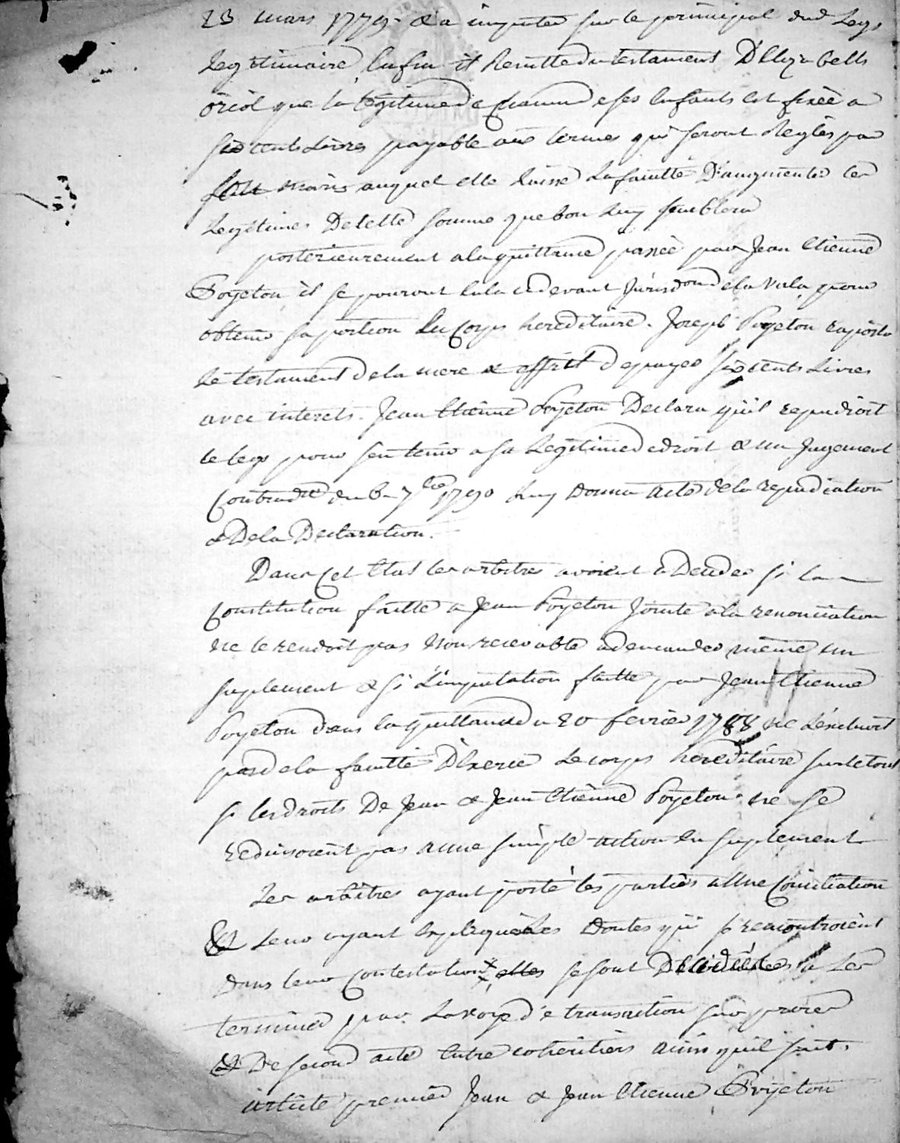 23 mars 1779. & a imputer sur le principal dud. Legs
Legitimaire, Enfin il Resulte du testament D'Elizabeth
oriol que la légitime de Chacun de ses Enfants est fixée a
six cents Livres payable aux termes qui seront Reglés par
son mari auquel elle laisse la faculté D'augmenter les
Legitimes De telle somme que bon luy semblera
posterieurement a la quittance passée par Jean Etienne
Poyeton il se pourvut en la cy devant Jurisdon de la Vala pour
obtenir sa portion En Corps hereditaire. Joseph Poyeton raporta
Le testament de la mere & offrit de payer six cents Livres
avec interets. Jean Etienne Poyeton Declara qu'il repudioit
le legs pour s'en tenir a sa Legitime de droit & un Jugement
Contradre du 6 7bre 1790 luy Donna acte de la repudiation
& De la Declaration.
Dans Cet Etat les arbitres avoient à Decider si la
Constitution faitte a Jean Poyeton Jointe a la renonciation
ne le rendoit pas Non recevable a demander même un
suplement & si L'imputation faitte par Jean Etienne
Poyeton dans la quittance du 20 fevrier 1788 ne L'excluoit
pas de la faculté D'Exercer Le corps hereditaire surtout
si les droits De Jean & Jean Etienne Poyeton ne se
reduisoient pas a une simple action En suplement
Les arbitres ayant porté les parties a Une Conciliation
& leur ayant Expliqué Les Doutes qui se rencontroient
Dans leur Contestation elles se sont Decidées a Les
terminer par La voye de transaction sur procès
& De second acte Entre coheritiers ainsi qu'il suit.
article premier Jean & Jean Etienne Poyeton